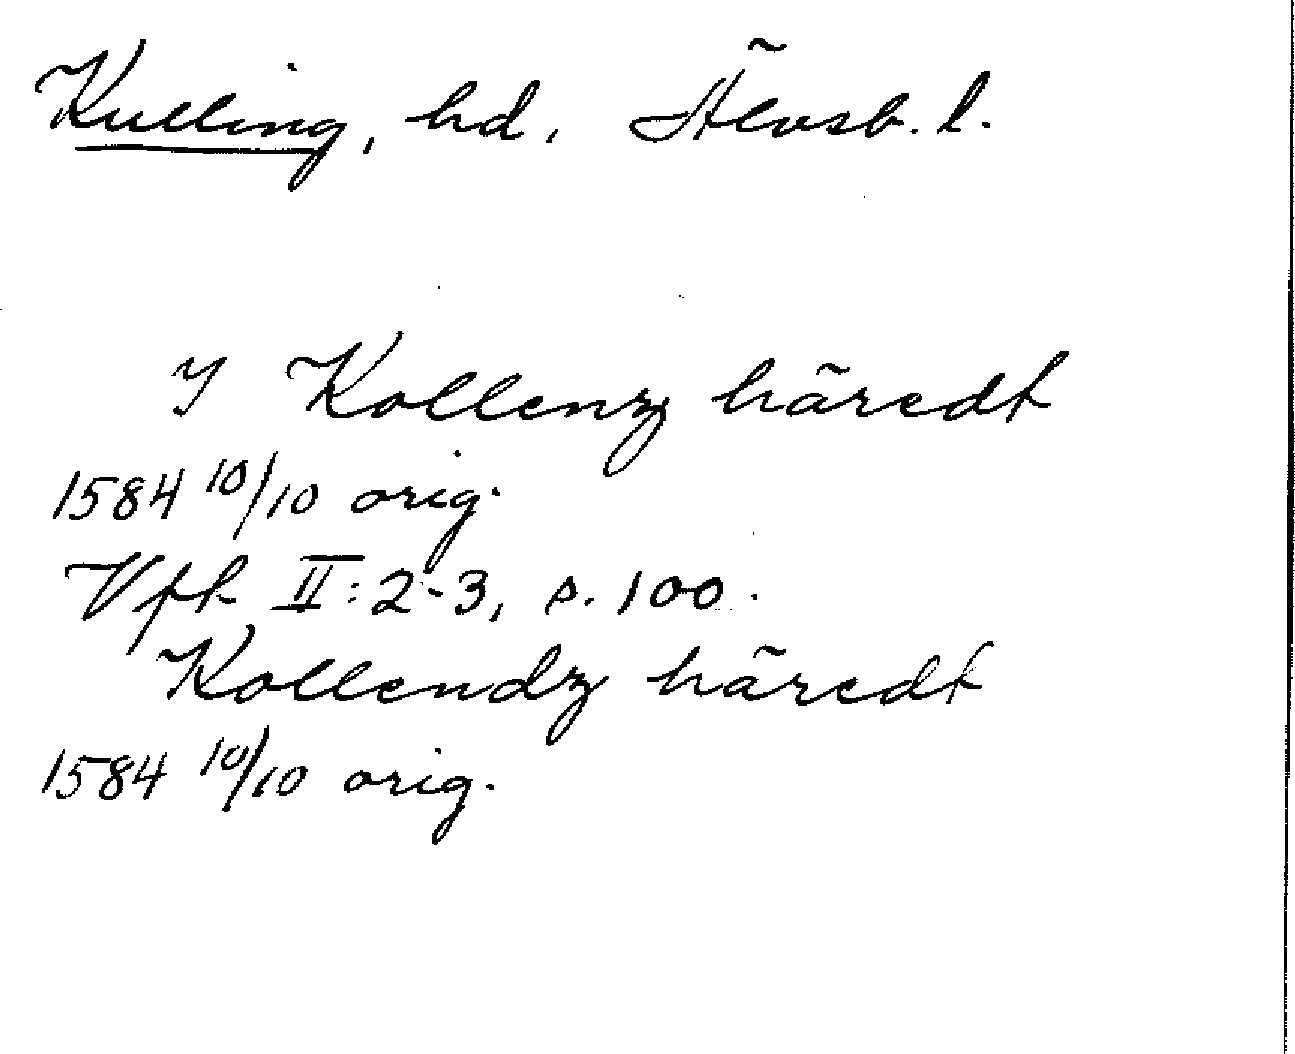 Kulling, hd, Älvsb. l.
I Kollenz häredt
1584 10/10 orig.
Vfh II:2-3, s. 100.
Kollendz häredt
1584 10/10 orig.